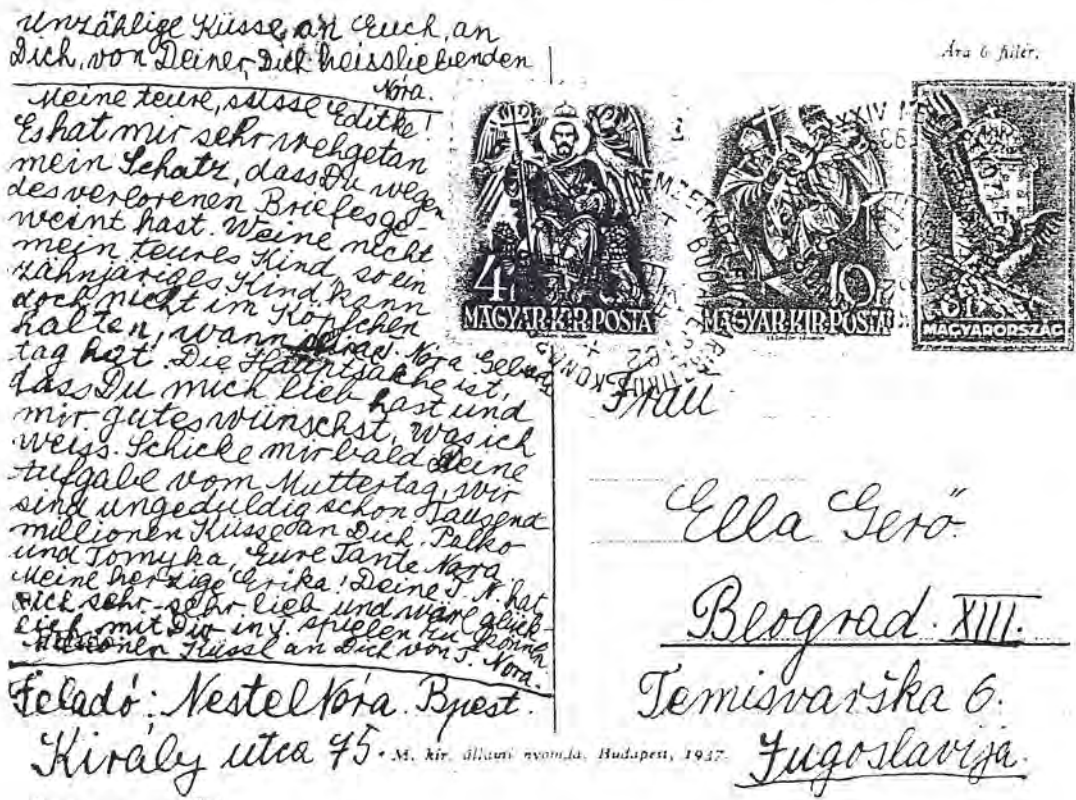 unzählige Küsse, an Euch, an
Dich, von Deiner, Dich heissliebenden
Nóra.
Meine teure, süsse Editke!
Es hat mir sehr wehgetan
mein Schatz, dass Du wegen
des verlorenen Briefes ge-
weint hast. Weine nicht
mein teures Kind, so ein
zähnjäriges Kind kann
doch nicht im Köpfchen
halten, wann Nóra Geburts
tag hat. Die Hauptsache ist,
dass Du mich lieb hast und
mir gutes wünschst, was ich
weiss. Schicke mir bald Deine
Aufgabe vom Muttertag, wir
sind ungeduldig schon Tausend
millionen Küsse an Dich, Palko
und Tomyka, Eure Tante Nóra
Meine herzige Erika! Deine T. N. hat
Dich sehr-sehr lieb und wäre glück-
lich mit Dir in J. spielen zu können
Millionen Küsse an Dich von T. Nóra.
Feladó: Nestel Nóra. Bpest.
Király utca 75
Ára 6 fillér.
4f
MAGYAR·KIR·POSTA
10f
MAGYAR·KIR·POSTA
6f
MAGYARORSZÁG
Frau
Ella Gerő
Beograd. XIII.
Temisvarška 6.
Jugoslavija.
M. kir. állami nyomda, Budapest, 1937.